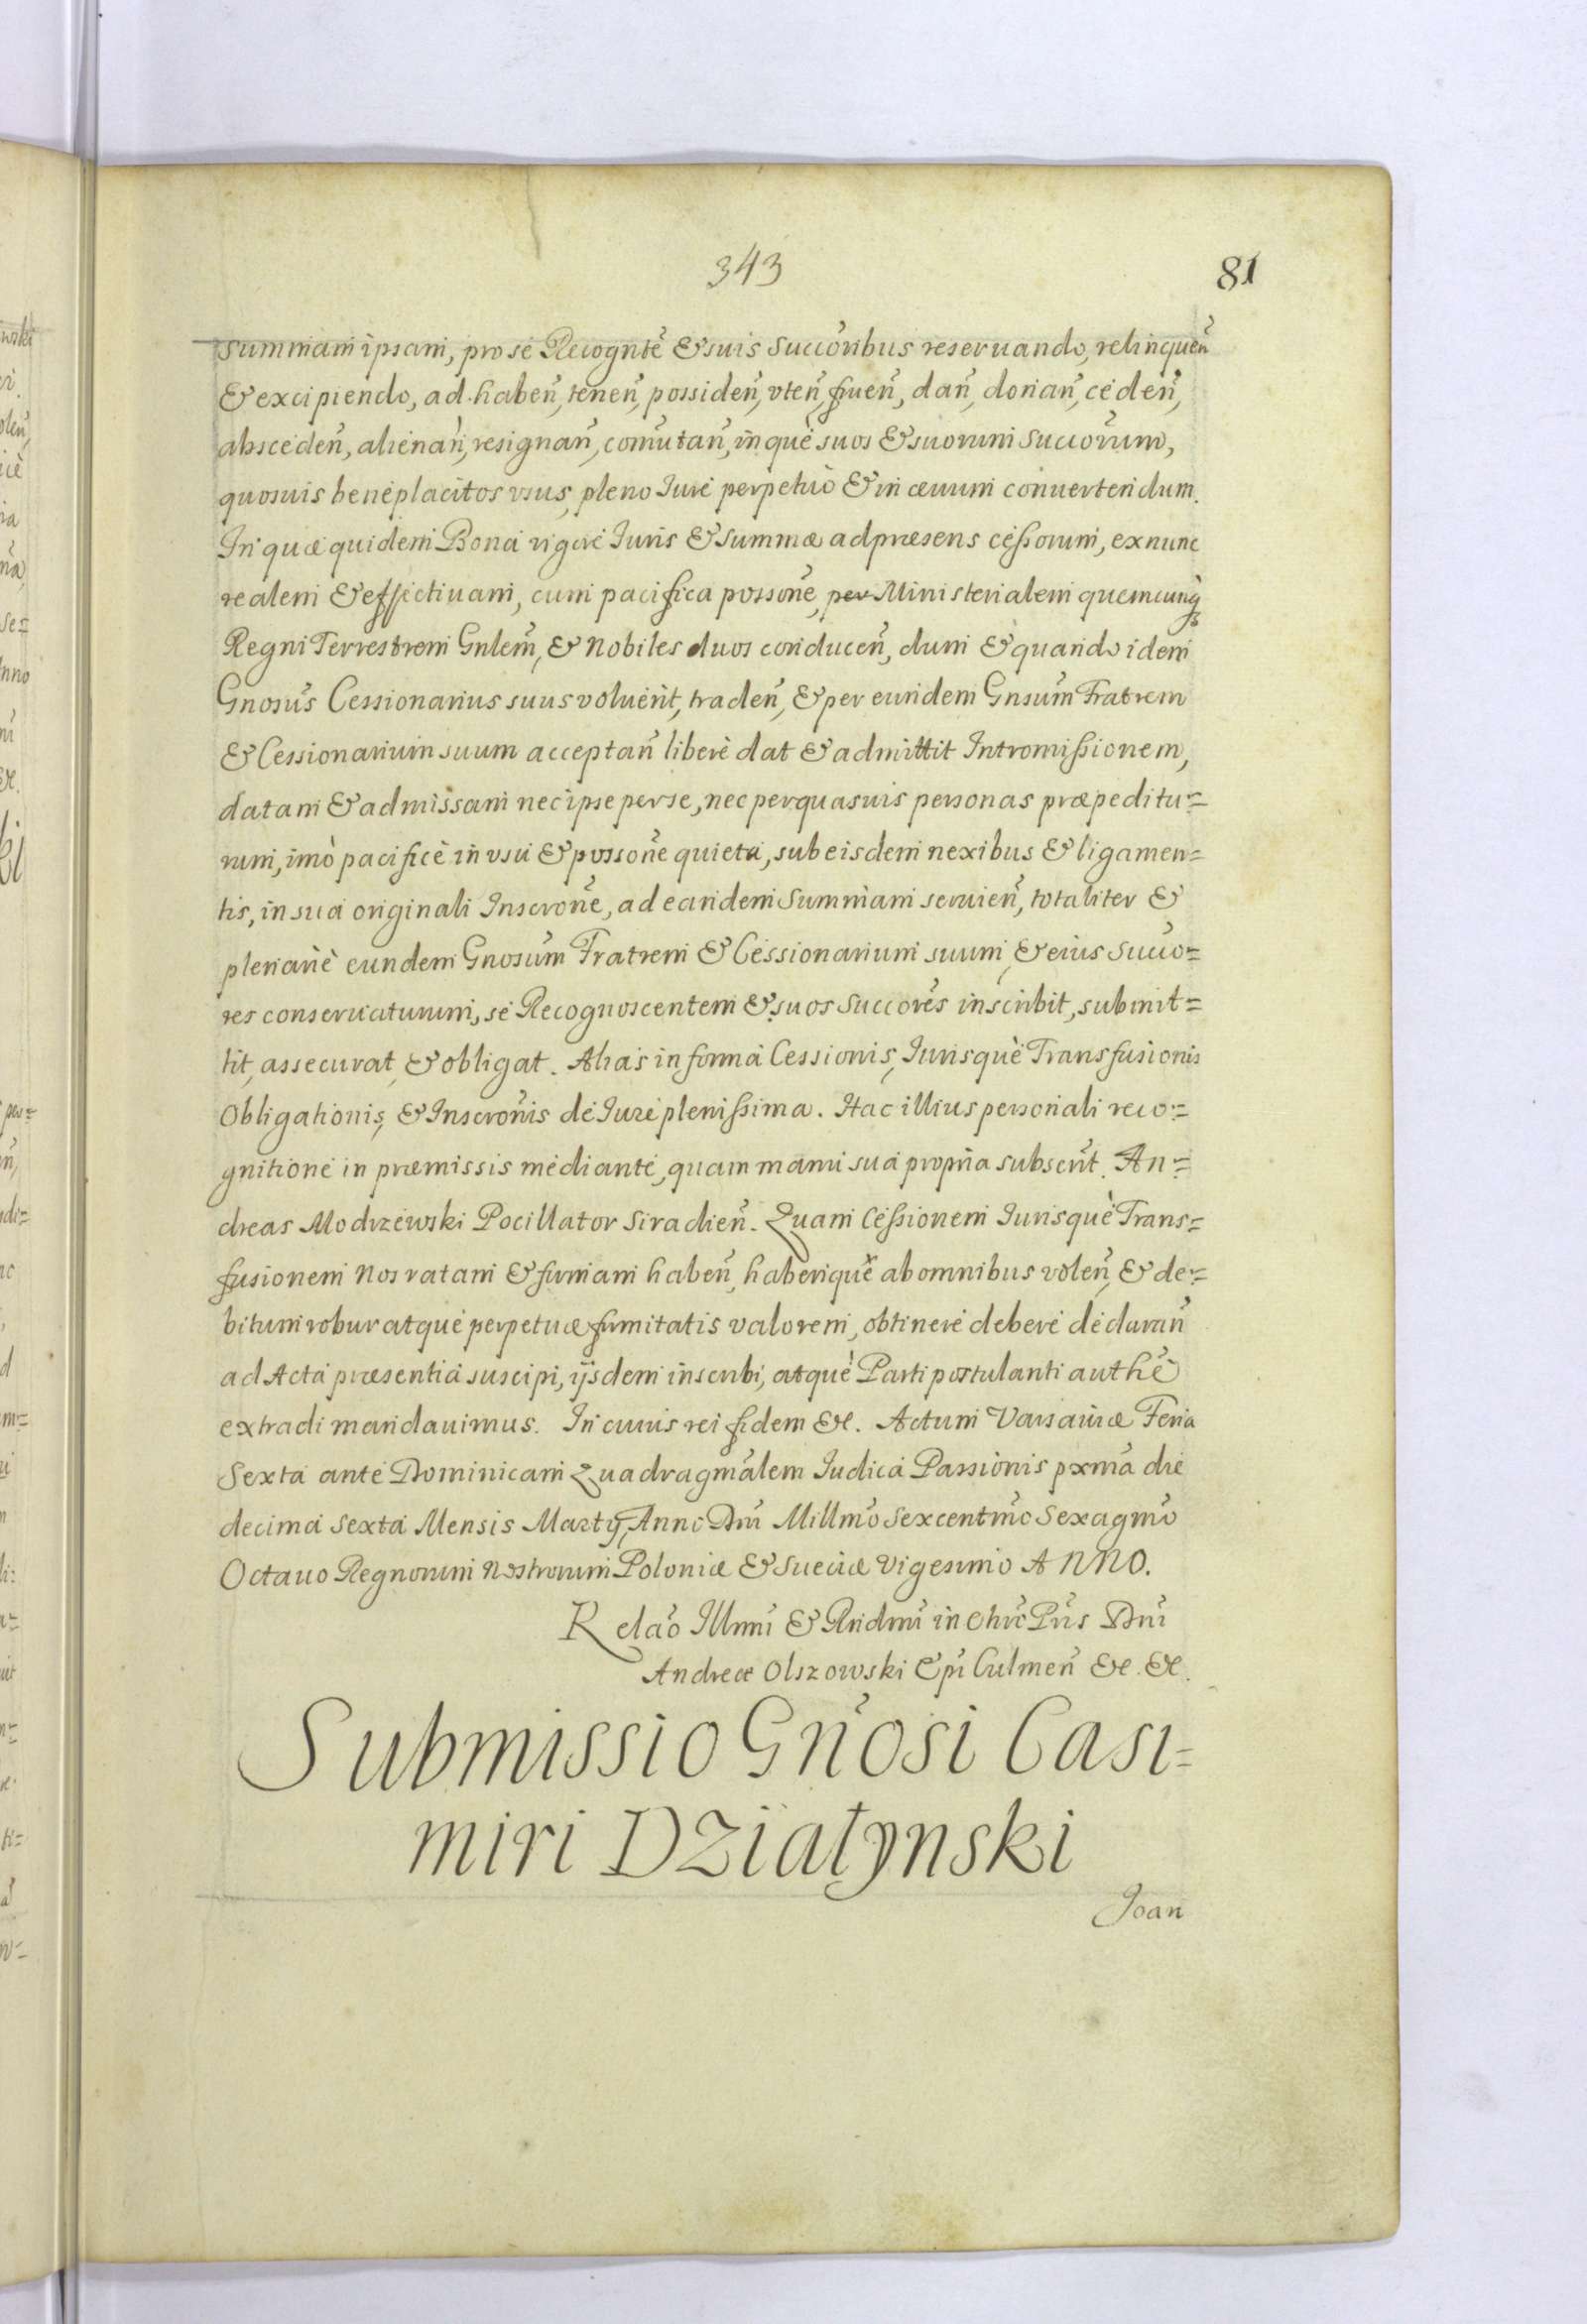 343
81
Summam ipsam, pro se Recogntẽ & suis Succõribus reseruando, relinqueñ
& excipiendo, ad habeñ, teneñ, possideñ, vteñ, frueñ, dañ, donañ, cedeñ,
absceden̄, alienañ, resignañ, com̃utañ, inquè suos & suorum Succorum̃,
quosuis beneplacitos vsus, pleno Iure perpetuò & in æuum conuertendum.
In quæ quidem Bona vigore Iuris & Summæ ad præsens cessorum, ex nunc
realem & effectiuam, cum pacifica possoñe, per Ministerialem quemcunq̃
Regni Terrestrem Gnlem̃, & Nobiles duos conduceñ, dum & quando idem
Gnosus̃ Cessionarius suus voluerit, tradeñ, & per eundem Gnsum̃ Fratrem
& Cessionarium suum acceptañ liberè dat & admittit Intromissionem,
datam & admissam nec ipse per se, nec per quasuis personas præpeditu=
rum, imò pacificè in vsu & possoñe quieta, sub eisdem nexibus & ligamen=
tis, in sua originali Inscroñe, ad eandem Summam seruieñ, totaliter &
plenariè eundem Gnosum̃ Fratrem & Cessionarium suum, & eius Succo=
res conseruaturum, se Recognoscentem & suos Succores̃ inscribit, submit=
tit, assecurat, & obligat. Alias in forma Cessionis, Iurisquè Transfusionis
Obligationis, & Inscroñis de Iure plenissima. Hac illius personali reco=
gnitione in præmissis mediante, quam manu sua propria subscrit̃. An=
dreas Modrzewski Pocillator Siradieñ. Quam Cessionem Iurisquè Trans=
fusionem Nos ratam & firmam habeñ, haberique ab omnibus voleñ, & de=
bitum robur atque perpetuæ firmitatis valorem, obtinere debere declarañ
ad Acta præsentia suscipi, ijsdem inscribi, atquè Parti postulanti authẽ
extradi mandauimus. In cuius rei fidem &c. Actum Varsauiæ Feria
Sexta ante Dominicam Quadragmãlem Iudica Passionis pxmã die
decima sexta Mensis Martij, Anno Dnĩ Millmõ Sexcentmõ Sexagmõ
Octauo Regnorum Nostrorum Poloniæ & Sueciæ Vigesimo ANNO.
Relaõ Illmĩ & Rndmĩ in Chrõ Prĩs Dnĩ
Andreæ Olszowski Epĩ Culmeñ &c. &c.
Submissio Gñosi Casi=
miri Działynski
Joan